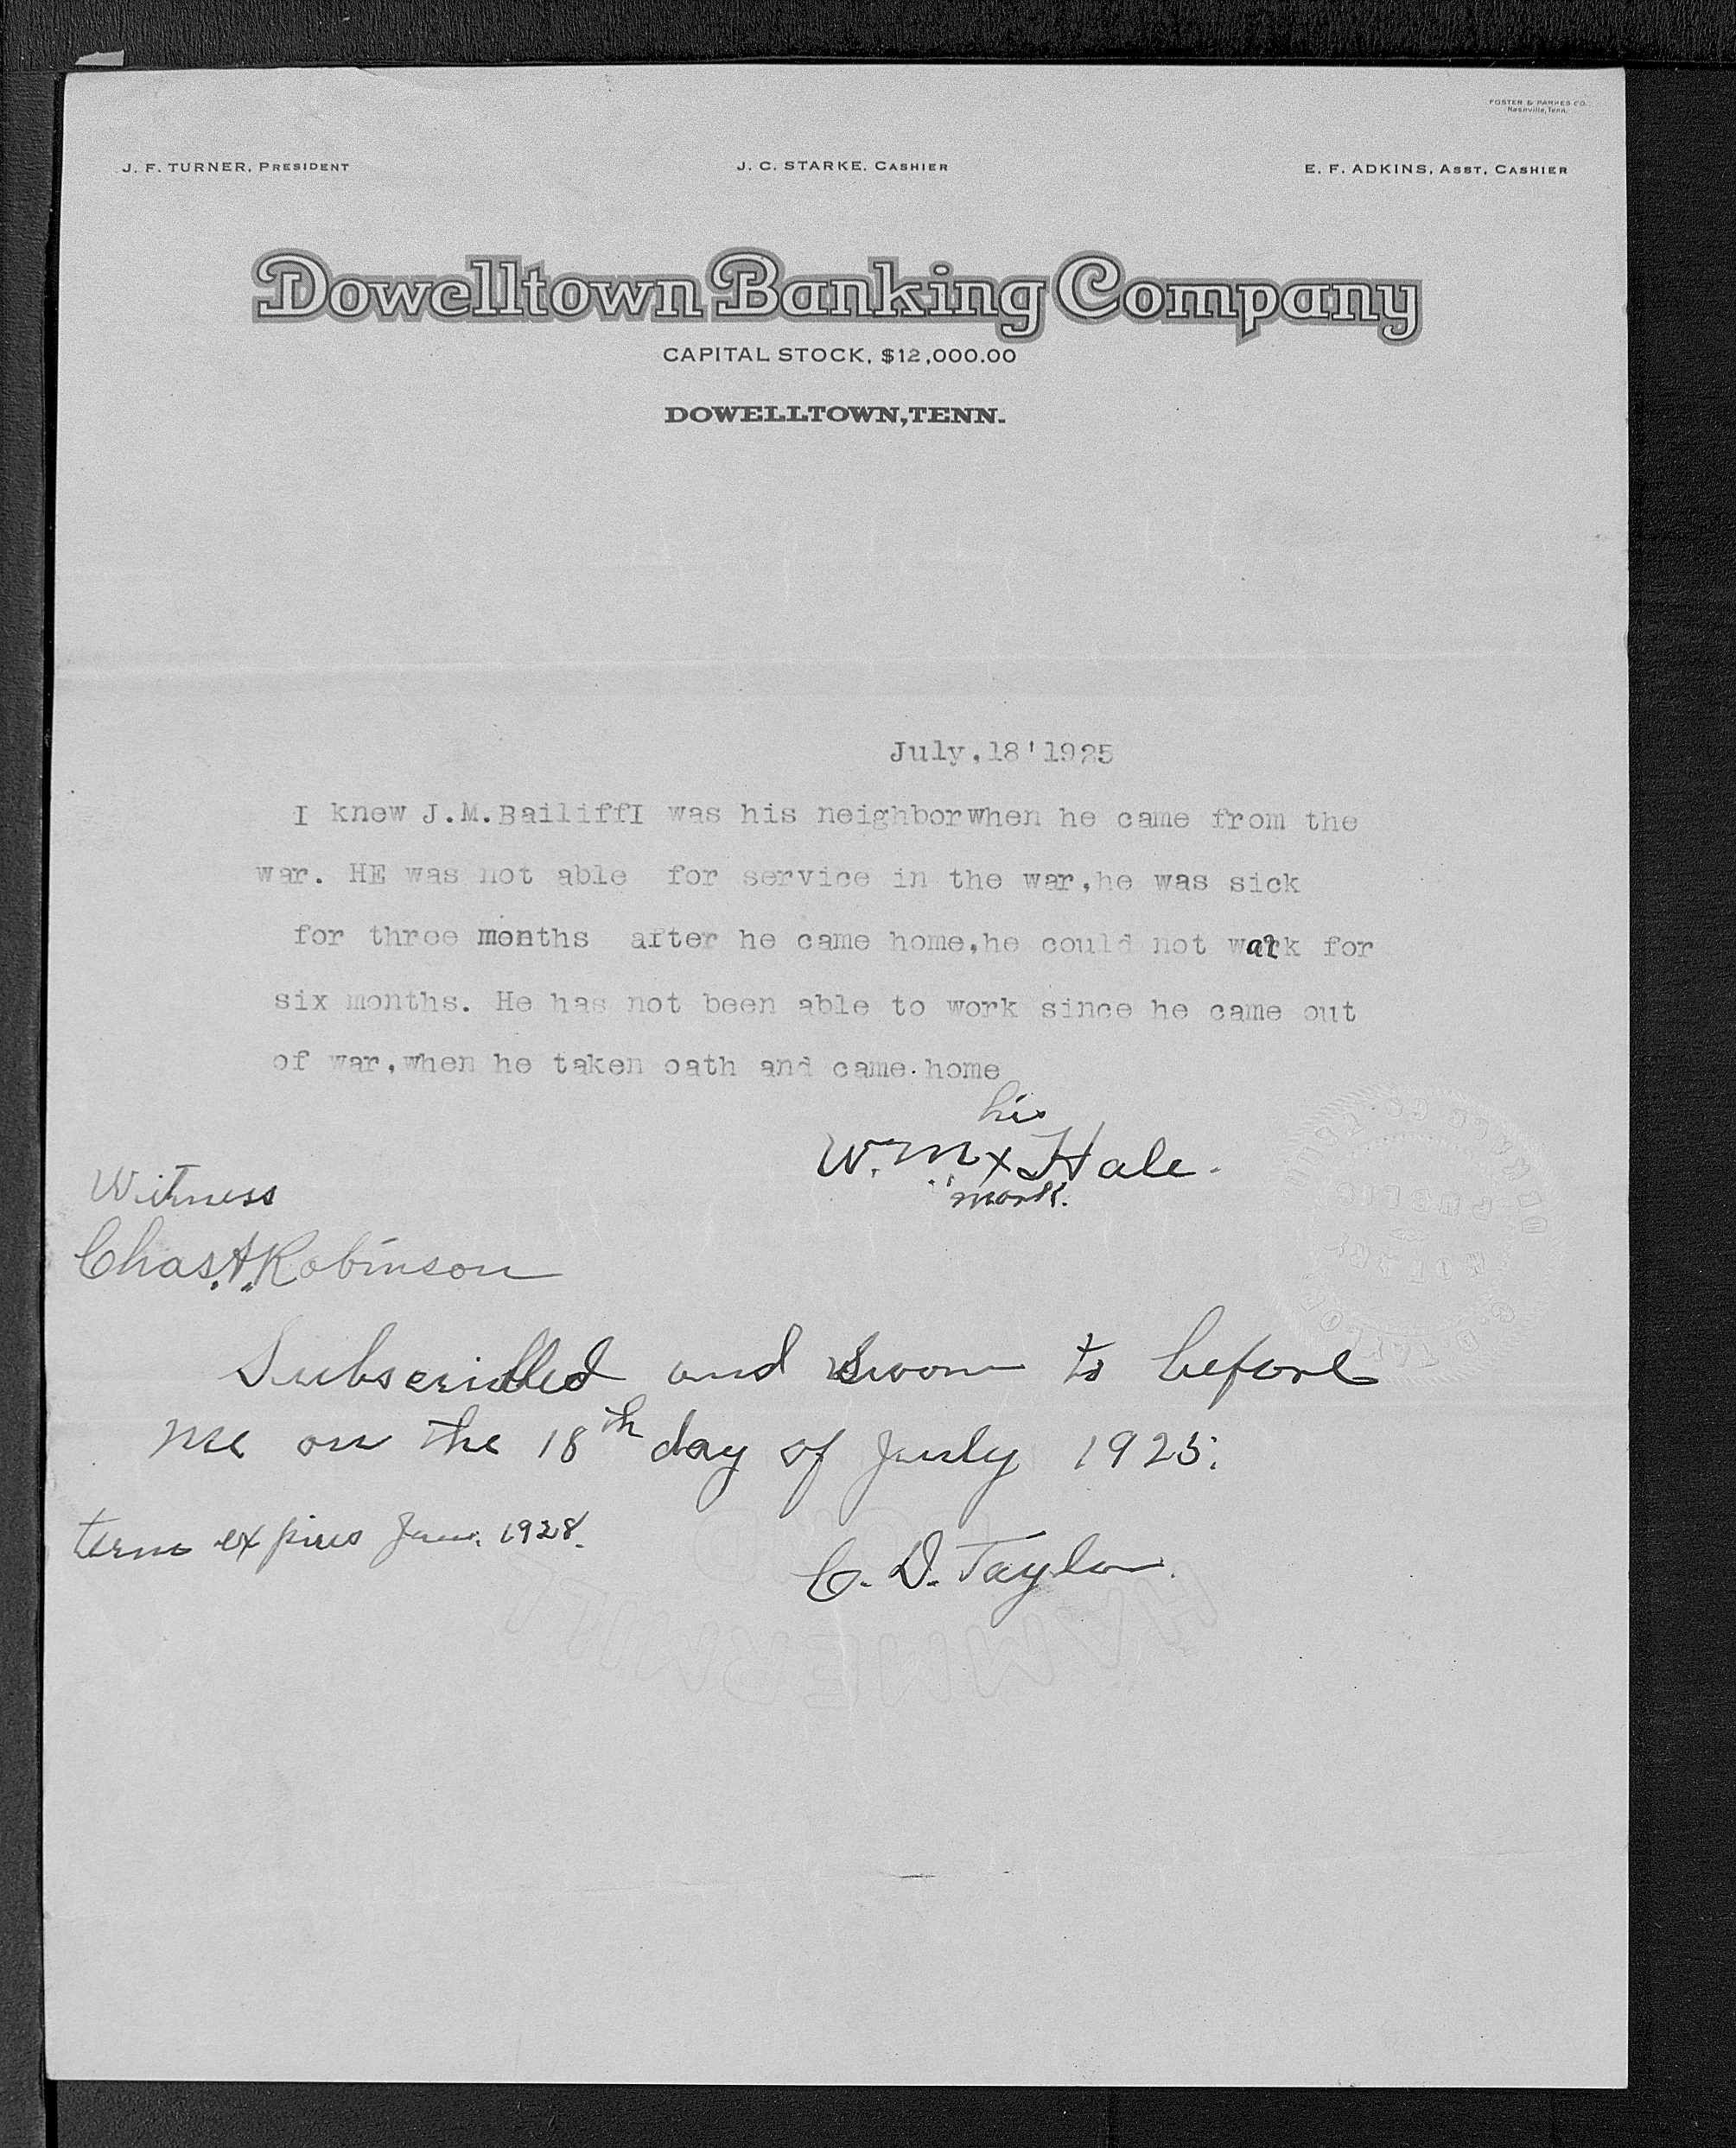 FOSTER & PARKES CO.
Nashville, Tenn.
J. F. TURNER, PRESIDENT J. C. STARKE, CASHIER E. F. ADKINS, ASST, CASHIER
Dowelltown Banking Company
CAPITAL STOCK, $12,000.00
DOWELLTOWN, TENN.
July,18'1925
I knew J.M.BailiffI was his neighborwhen he came from the
war. HE was not able for service in the war,he was sick
for three months after he came home,he could not walk for
six months. He has not been able to work since he came out
of war,when he taken oath and came.home
his
W.m x Hale.
mark.
Witness
Chas.A.Robinson
Subscribed and sworn to before
me on the 18th day of July 1925.
term expires Jan. 1928.
C. D. Taylor.
NOTARY
PUBLIC
HAMMERMILL